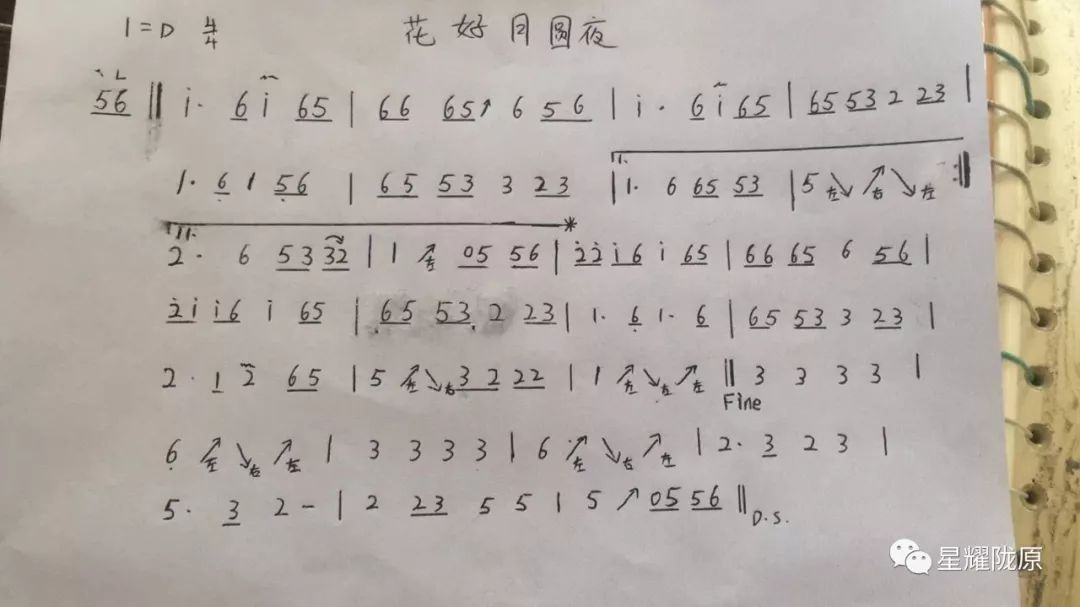 1=D 4/4 花好月圆夜
56 ‖ i· 6 i 65 | 66 65↗ 6 56 | i· 6 i 65 | 65 53 2 23 |
1· 6 1 56 | 65 53 3 23 | I. 1· 6 65 53 | 5 左↘ ↗右 ↘左 :‖
II. 2· 6 53 32 * | 1 ↗左 05 56 | 22 i6 i 65 | 66 65 6 56 |
2i i6 i 65 | 65 53 2 23 | 1· 6 1· 6 | 65 53 3 23 |
2· 1 2 65 | 5 ↗左 ↘右 32 22 | 1 ↗左 ↘左 ↗左 ‖ 3 3 3 3 |
Fine
6 ↗左 ↘右 ↗左 | 3 3 3 3 | 6 ↗左 ↘右 ↗左 | 2· 3 2 3 |
5· 3 2 - | 2 23 5 5 | 5 ↗ 05 56 ‖ D.S.
星耀陇原